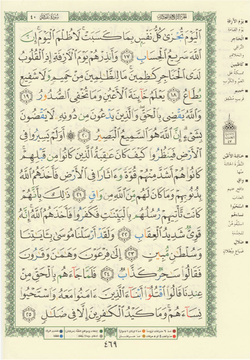 ٱلْيَوْمَ تُجْزَىٰ كُلُّ نَفْسٍۭ بِمَا كَسَبَتْ لَا ظُلْمَ ٱلْيَوْمَ إِنَّ
ٱللَّهَ سَرِيعُ ٱلْحِسَابِ ١٧ وَأَنذِرْهُمْ يَوْمَ ٱلْءَازِفَةِ إِذِ ٱلْقُلُوبُ
لَدَى ٱلْحَنَاجِرِ كَٰظِمِينَ مَا لِلظَّٰلِمِينَ مِنْ حَمِيمٍ وَلَا شَفِيعٍ
يُطَاعُ ١٨ يَعْلَمُ خَآئِنَةَ ٱلْأَعْيُنِ وَمَا تُخْفِى ٱلصُّدُورُ ١٩
وَٱللَّهُ يَقْضِى بِٱلْحَقِّ وَٱلَّذِينَ يَدْعُونَ مِن دُونِهِۦ لَا يَقْضُونَ
بِشَىْءٍ إِنَّ ٱللَّهَ هُوَ ٱلسَّمِيعُ ٱلْبَصِيرُ ٢٠ أَوَلَمْ يَسِيرُوا۟ فِى
ٱلْأَرْضِ فَيَنظُرُوا۟ كَيْفَ كَانَ عَٰقِبَةُ ٱلَّذِينَ كَانُوا۟ مِن قَبْلِهِمْ
كَانُوا۟ هُمْ أَشَدَّ مِنْهُمْ قُوَّةً وَءَاثَارًا فِى ٱلْأَرْضِ فَأَخَذَهُمُ ٱللَّهُ
بِذُنُوبِهِمْ وَمَا كَانَ لَهُم مِّنَ ٱللَّهِ مِن وَاقٍ ٢١ ذَٰلِكَ بِأَنَّهُمْ
كَانَت تَّأْتِيهِمْ رُسُلُهُم بِٱلْبَيِّنَٰتِ فَكَفَرُوا۟ فَأَخَذَهُمُ ٱللَّهُ إِنَّهُۥ
قَوِىٌّ شَدِيدُ ٱلْعِقَابِ ٢٢ وَلَقَدْ أَرْسَلْنَا مُوسَىٰ بِـَٔايَٰتِنَا
وَسُلْطَٰنٍ مُّبِينٍ ٢٣ إِلَىٰ فِرْعَوْنَ وَهَٰمَٰنَ وَقَٰرُونَ
فَقَالُوا۟ سَٰحِرٌ كَذَّابٌ ٢٤ فَلَمَّا جَآءَهُم بِٱلْحَقِّ مِنْ
عِندِنَا قَالُوا۟ ٱقْتُلُوٓا۟ أَبْنَآءَ ٱلَّذِينَ ءَامَنُوا۟ مَعَهُۥ وَٱسْتَحْيُوا۟
نِسَآءَهُمْ وَمَا كَيْدُ ٱلْكَٰفِرِينَ إِلَّا فِى ضَلَٰلٍ ٢٥
٤٦٩